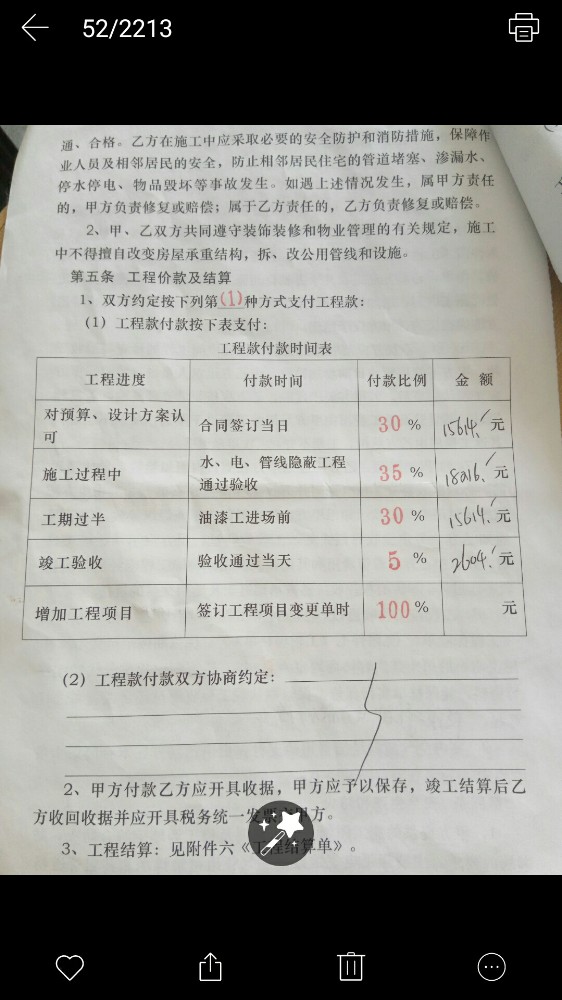 52/2213
通、合格。乙方在施工中应采取必要的安全防护和消防措施，保障作
业人员及相邻居民的安全，防止相邻居民住宅的管道堵塞、渗漏水、
停水停电、物品毁坏等事故发生。如遇上述情况发生，属甲方责任
的，甲方负责修复或赔偿；属于乙方责任的，乙方负责修复或赔偿。
2、甲、乙双方共同遵守装饰装修和物业管理的有关规定，施工
中不得擅自改变房屋承重结构，拆、改公用管线和设施。
第五条 工程价款及结算
1、双方约定按下列第(1)种方式支付工程款：
(1) 工程款付款按下表支付：
工程款付款时间表
工程进度 付款时间 付款比例 金 额
对预算、设计方案认
可 合同签订当日 30 % 15614. 元
施工过程中 水、电、管线隐蔽工程
通过验收 35 % 18216. 元
工期过半 油漆工进场前 30 % 15614. 元
竣工验收 验收通过当天 5 % 2604. 元
增加工程项目 签订工程项目变更单时 100 % 元
(2) 工程款付款双方协商约定：
2、甲方付款乙方应开具收据，甲方应予以保存，竣工结算后乙
方收回收据并应开具税务统一发票 甲方。
3、工程结算：见附件六《工程结算单》。